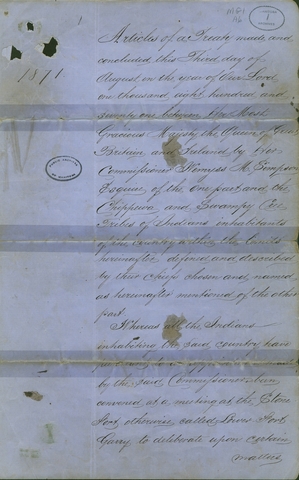 1871
Articles of a Treaty made and
concluded this Third day of
August in the year of Our Lord
one thousand eight hundred and
seventy one between Her Most
Gracious Majesty the Queen of Great
Britain and Ireland by Her
Commissioner Wemyss M. Simpson
Esquire of the One part and the
Chippewa and Swampy Cree
Tribes of Indians inhabitants
of the country within the limits
hereinafter defined and described
by their Chiefs chosen and named
as hereinafter mentioned of the other
part
Whereas all the Indians
inhabiting the said country have
pursuant to
by the said Commissioner been
convened at a meeting at the Stone
Fort otherwise called Lower Fort
Garry to deliberate upon certain
matters